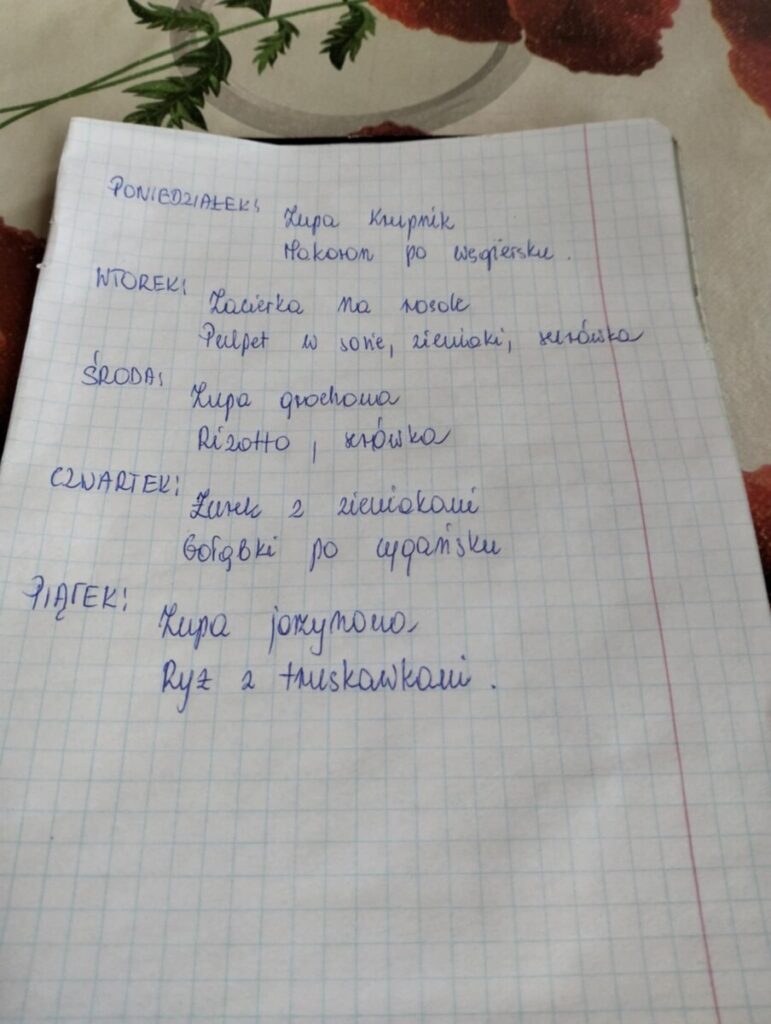 PONIEDZIAŁEK:
Zupa Krupnik
Makaron po węgiersku.
WTOREK:
Zacierka na rosole
Pulpet w sosie, ziemniaki, surówka
ŚRODA:
Zupa grochowa
Rizotto, surówka
CZWARTEK:
Żurek z ziemiakami
Gołąbki po cygańsku
PIĄTEK:
Zupa jarzynowa
Ryż z truskawkami.